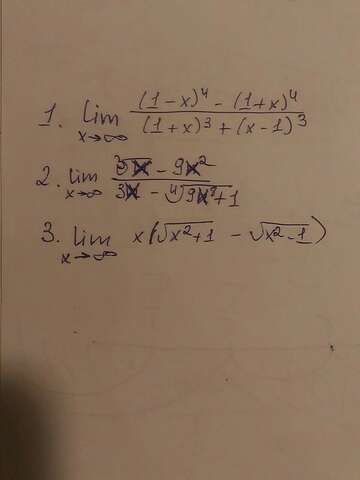 1. lim x→∞ ((1-x)⁴ - (1+x)⁴) / ((1+x)³ + (x-1)³)
2. lim x→∞ (∛x - 9x²) / (3x - ∜(9x⁸+1))
3. lim x→∞ x(√(x²+1) - √(x²-1))